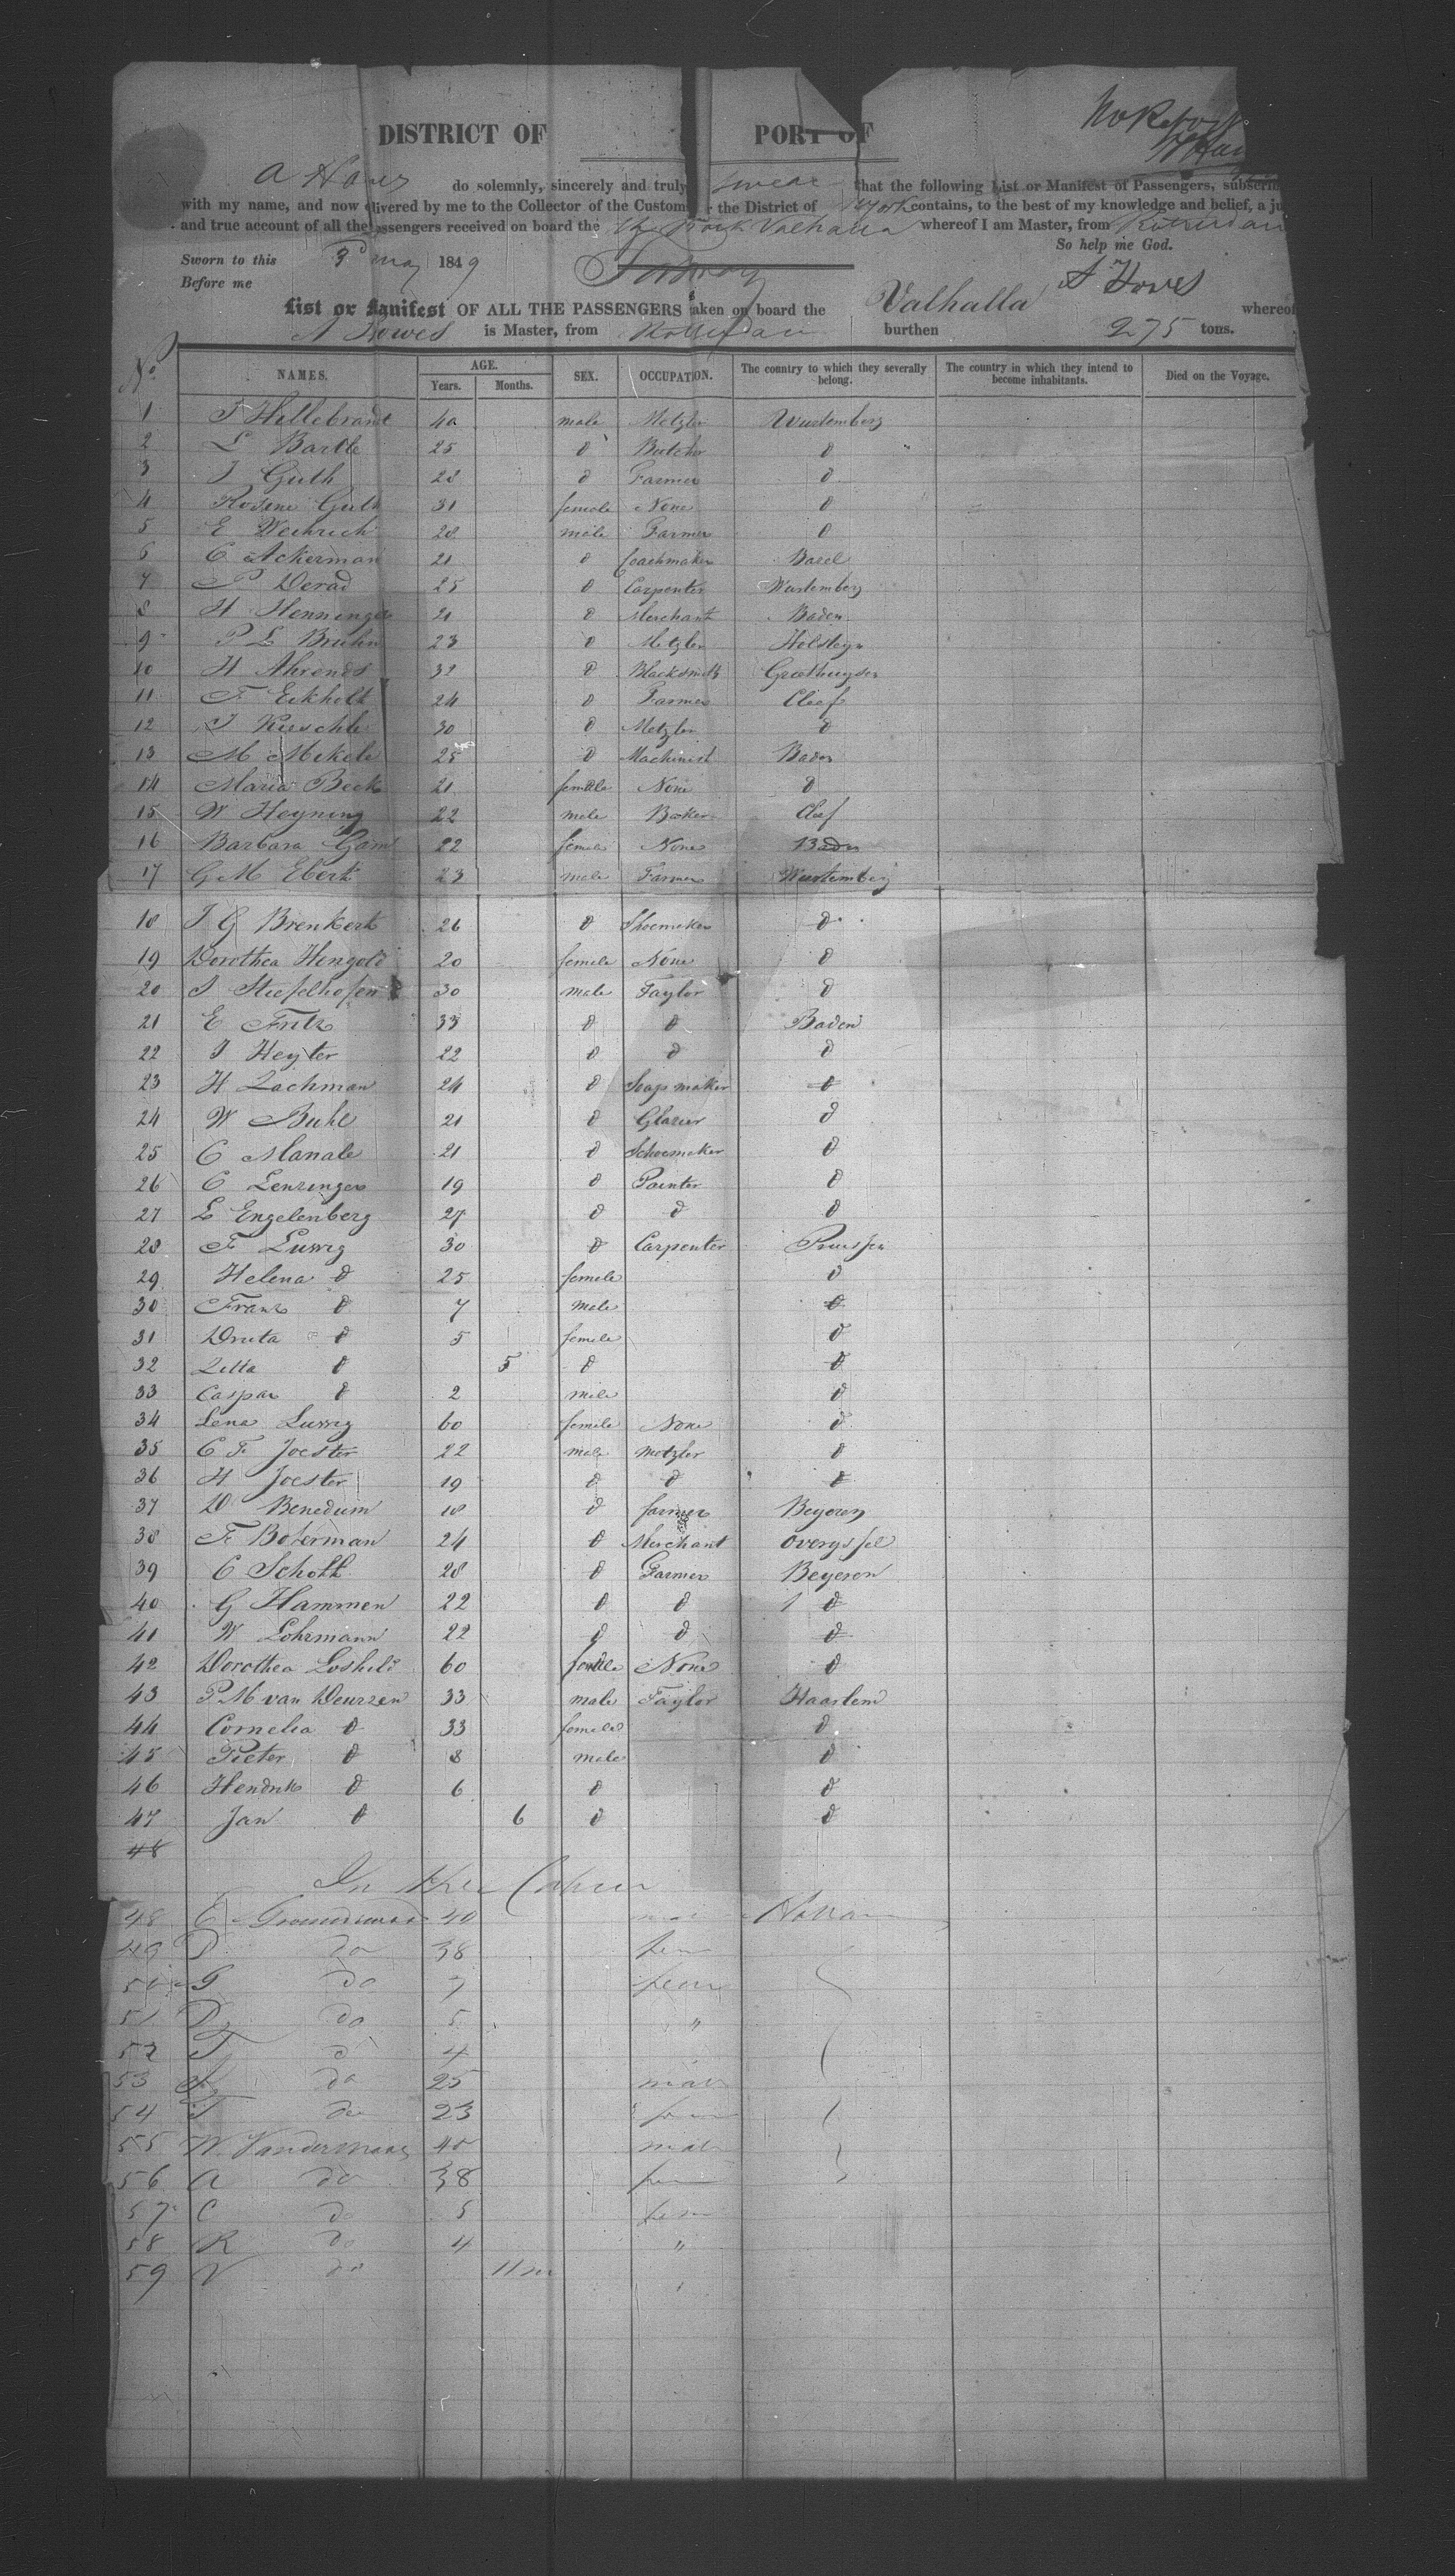 No Report
DISTRICT OF PORT OF
A Howes do solemnly, sincerely and truly swear that the following List or Manifest of Passengers, subscri
with my name, and now delivered by me to the Collector of the Customs the District of N York contains, to the best of my knowledge and belief, a ju
and true account of all the passengers received on board the Valhalla whereof I am Master, from Rotterdam
So help me God.
Sworn to this 3d May 1849
A Howes
Before me
List or Manifest OF ALL THE PASSENGERS taken on board the Valhalla whereof
A Howes is Master, from Rotterdam burthen 275 tons.
No NAMES. AGE. Years. Months. SEX. OCCUPATION. The country to which they severally belong. The country in which they intend to become inhabitants. Died on the Voyage.
1 J Hillebrandt 40 male Metzler Wurtemberg
2 L Bartle 25 d Butcher d
3 J Guth 28 d Farmer d
4 Rosine Guth 31 female None d
5 E Weihrich 28 male Farmer d
6 C Ackerman 21 d Coachmaker Basel
7 P Derad 25 d Carpenter Wurtemberg
8 H Henninger 21 d Merchant Baden
9 P L Bruhn 23 d Metzler Holsteyn
10 H Ahrends 32 d Blacksmith Groothuysen
11 F Eckholt 24 d Farmer Cleef
12 J Rueschle 30 d Metzler d
13 M Mekele 25 d Machinist Baden
14 Maria Beck 21 female None d
15 W Heyning 22 male Baker Cleef
16 Barbara Gam 22 female None Baden
17 G M Ebert 23 male Farmer Wurtemberg
18 J G Brenkert 26 d Shoemaker d
19 Dorothea Hengold 20 female None d
20 J Stiefelhofen 30 male Taylor d
21 E Fritz 33 d d Baden
22 J Heyter 22 d d d
23 H Lachman 24 d Soap maker d
24 W Buhl 21 d Glazier d
25 C Manale 21 d Schoemaker d
26 C Lenzinger 19 d Painter d
27 L Engelenberg 27 d d d
28 F Lussig 30 d Carpenter Pruissen
29 Helena d 25 female d
30 Franz d 7 male d
31 Druta d 5 female d
32 Zetta d 5 d d
33 Caspar d 2 male d
34 Lena Lussig 60 female None d
35 C F Joester 22 male Metzler d
36 H Joester 19 d d d
37 D Benedum 18 d farmer Beyeren
38 F Boterman 24 d Merchant Overyssel
39 C Schott 28 d Farmer Beyeren
40 G Hammen 22 d d d
41 W Lohrmann 22 d d d
42 Dorothea Losheld 60 female None d
43 P M van Deurzen 33 male Taylor Haarlem
44 Cornelia d 33 female d
45 Pieter d 8 male d
46 Hendrik d 6 d d
47 Jan d 6 d d
48
In the Cabin
48 E 40 Holland
49 P do 38 fem
50 G do 7 fem
51 D do 5 "
52 T d 4
53 do 25 male
54 T do 23 fem
55 W. Vandermaas 40 male
56 A do 38 fem
57 C do 5 fem
58 R do 4 "
59 V do 11 m